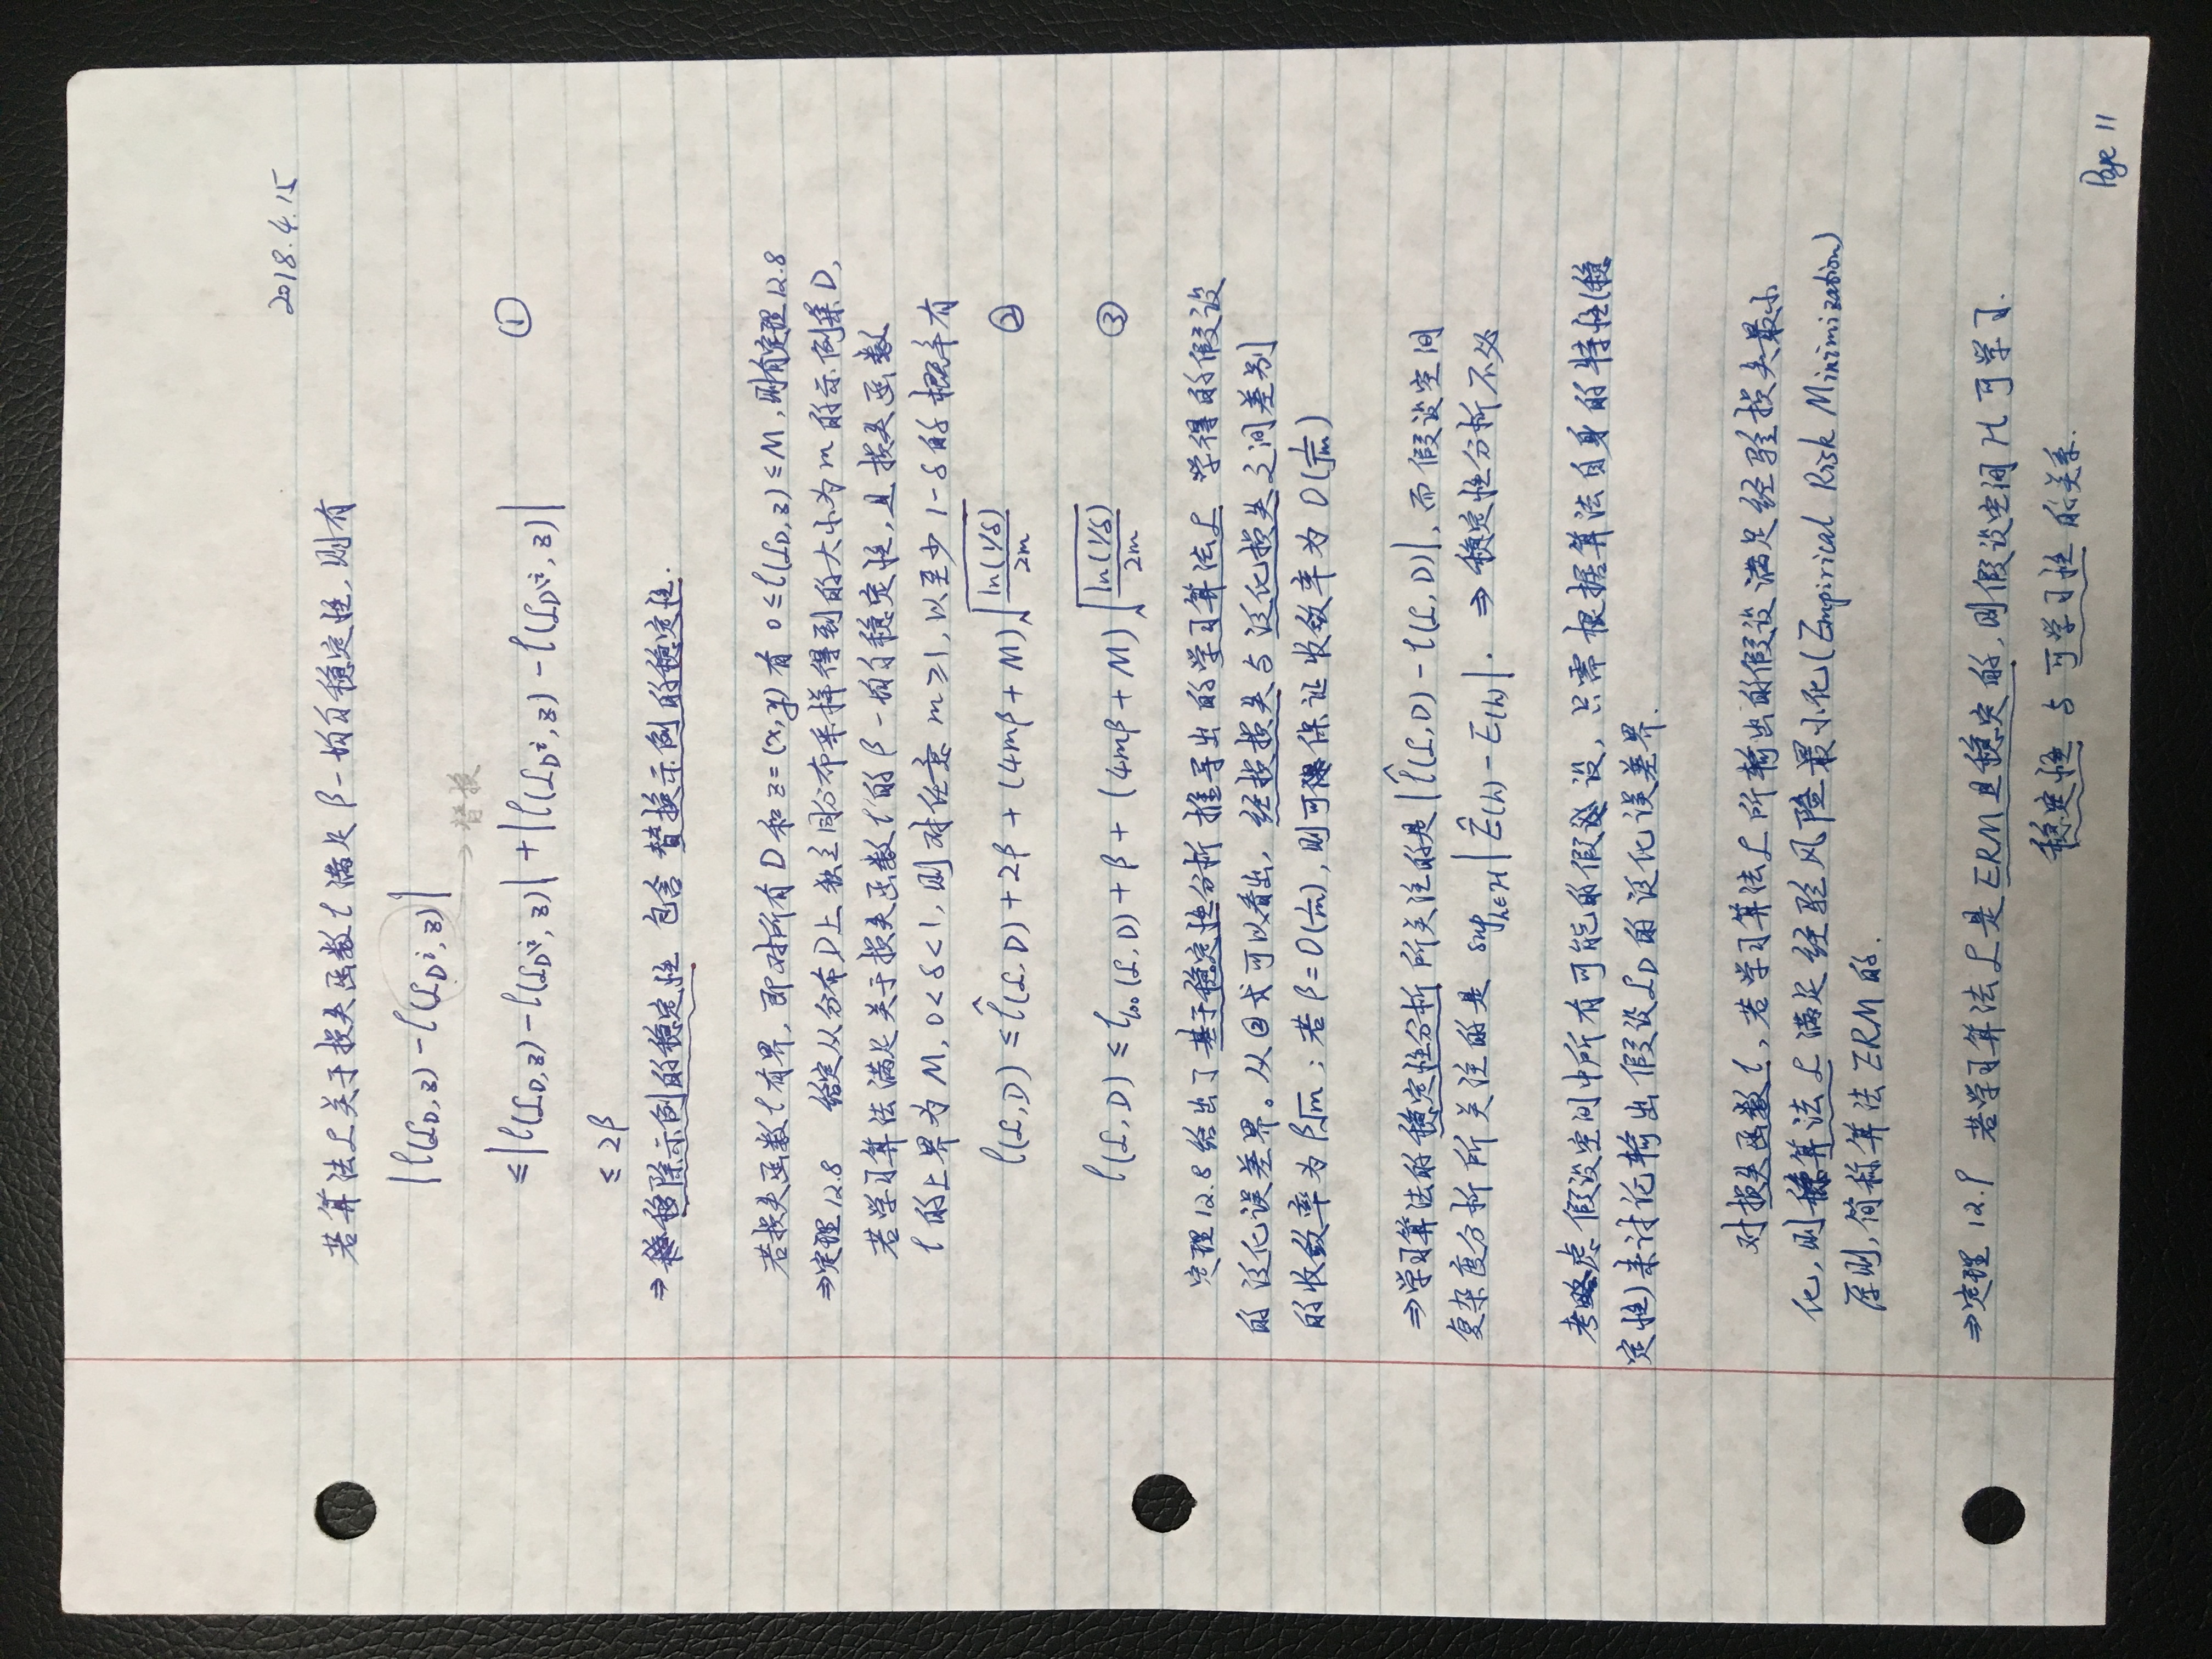 2018.4.15
若算法𝔏关于损失函数ℓ满足β-均匀稳定性，则有
|ℓ(𝔏_D, z) - ℓ(𝔏_{D^i}, z)|
→ 替换
≤ |ℓ(𝔏_D, z) - ℓ(𝔏_{D^{\i}}, z)| + |ℓ(𝔏_{D^i}, z) - ℓ(𝔏_{D^{\i}}, z)| ①
≤ 2β
⇒ 移除示例的稳定性 包含 替换示例的稳定性.
若损失函数ℓ有界，即对所有D和z=(x,y)有 0≤ℓ(𝔏_D, z)≤M，则有定理12.8
⇒定理12.8 给定从分布D上独立同分布采样得到的大小为m的示例集D,
若学习算法满足关于损失函数ℓ的β-均匀稳定性，且损失函数
ℓ的上界为M, 0<δ<1, 则对任意 m≥1, 以至少 1-δ的概率有
ℓ(𝔏,D) ≤ ℓ̂(𝔏,D) + 2β + (4mβ+M)√(ln(1/δ)/2m) ②
ℓ(𝔏,D) ≤ ℓ_loo(𝔏,D) + β + (4mβ+M)√(ln(1/δ)/2m) ③
定理12.8给出了基于稳定性分析推导出的学习算法𝔏 学得的假设
的泛化误差界。从②式可以看出，经损损失与泛化损失之间差别
的收敛率为β√m；若β=O(1/m), 则可保证收敛率为 O(1/√m)
⇒学习算法的稳定性分析所关注的是|ℓ̂(𝔏,D) - ℓ(𝔏,D)|, 而假设空间
复杂度分析所关注的是 sup_{h∈H}|Ê(h) - E(h)|. ⇒ 稳定性分析不必
考虑假设空间中所有可能的假设，只需根据算法自身的特性(稳
定性)来讨论输出假设𝔏_D的泛化误差界.
对损失函数ℓ, 若学习算法𝔏所输出的假设满足经验损失最小
化, 则称算法𝔏满足经验风险最小化(Empirical Risk Minimization)
原则, 简称算法ERM的.
⇒定理 12.9 若学习算法𝔏是ERM且稳定的, 则假设空间H可学习.
稳定性 与 可学习性 的关系.
Page 11